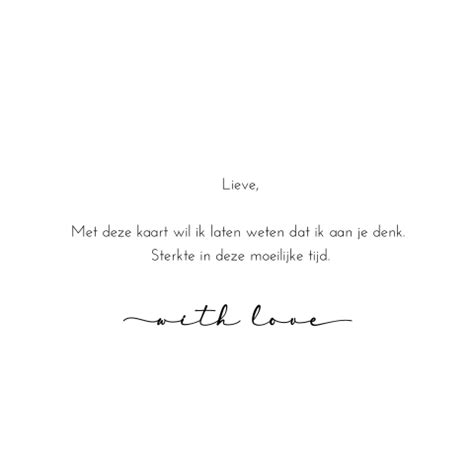 Lieve,
Met deze kaart wil ik laten weten dat ik aan je denk.
Sterkte in deze moeilijke tijd.
with love